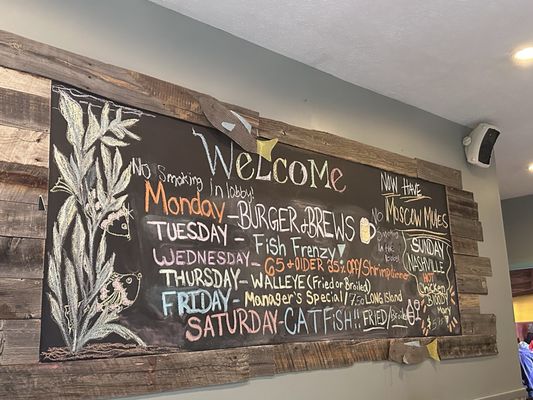 Welcome
No Smoking in lobby!
Monday - BURGER & BREWS
TUESDAY - Fish Frenzy
WEDNESDAY - 65 & OLDER 25% OFF/Shrimp Dinner
THURSDAY - WALLEYE (Fried or Broiled)
FRIDAY - Manager's Special/7.50 LONG ISLAND
SATURDAY - CATFISH!! FRIED/
NOW HAVE
MOSCOW MULES
No Smoking
in the lobby
SUNDAY
NASHVILLE
HOT
CHICKEN
BLOODY
MARY